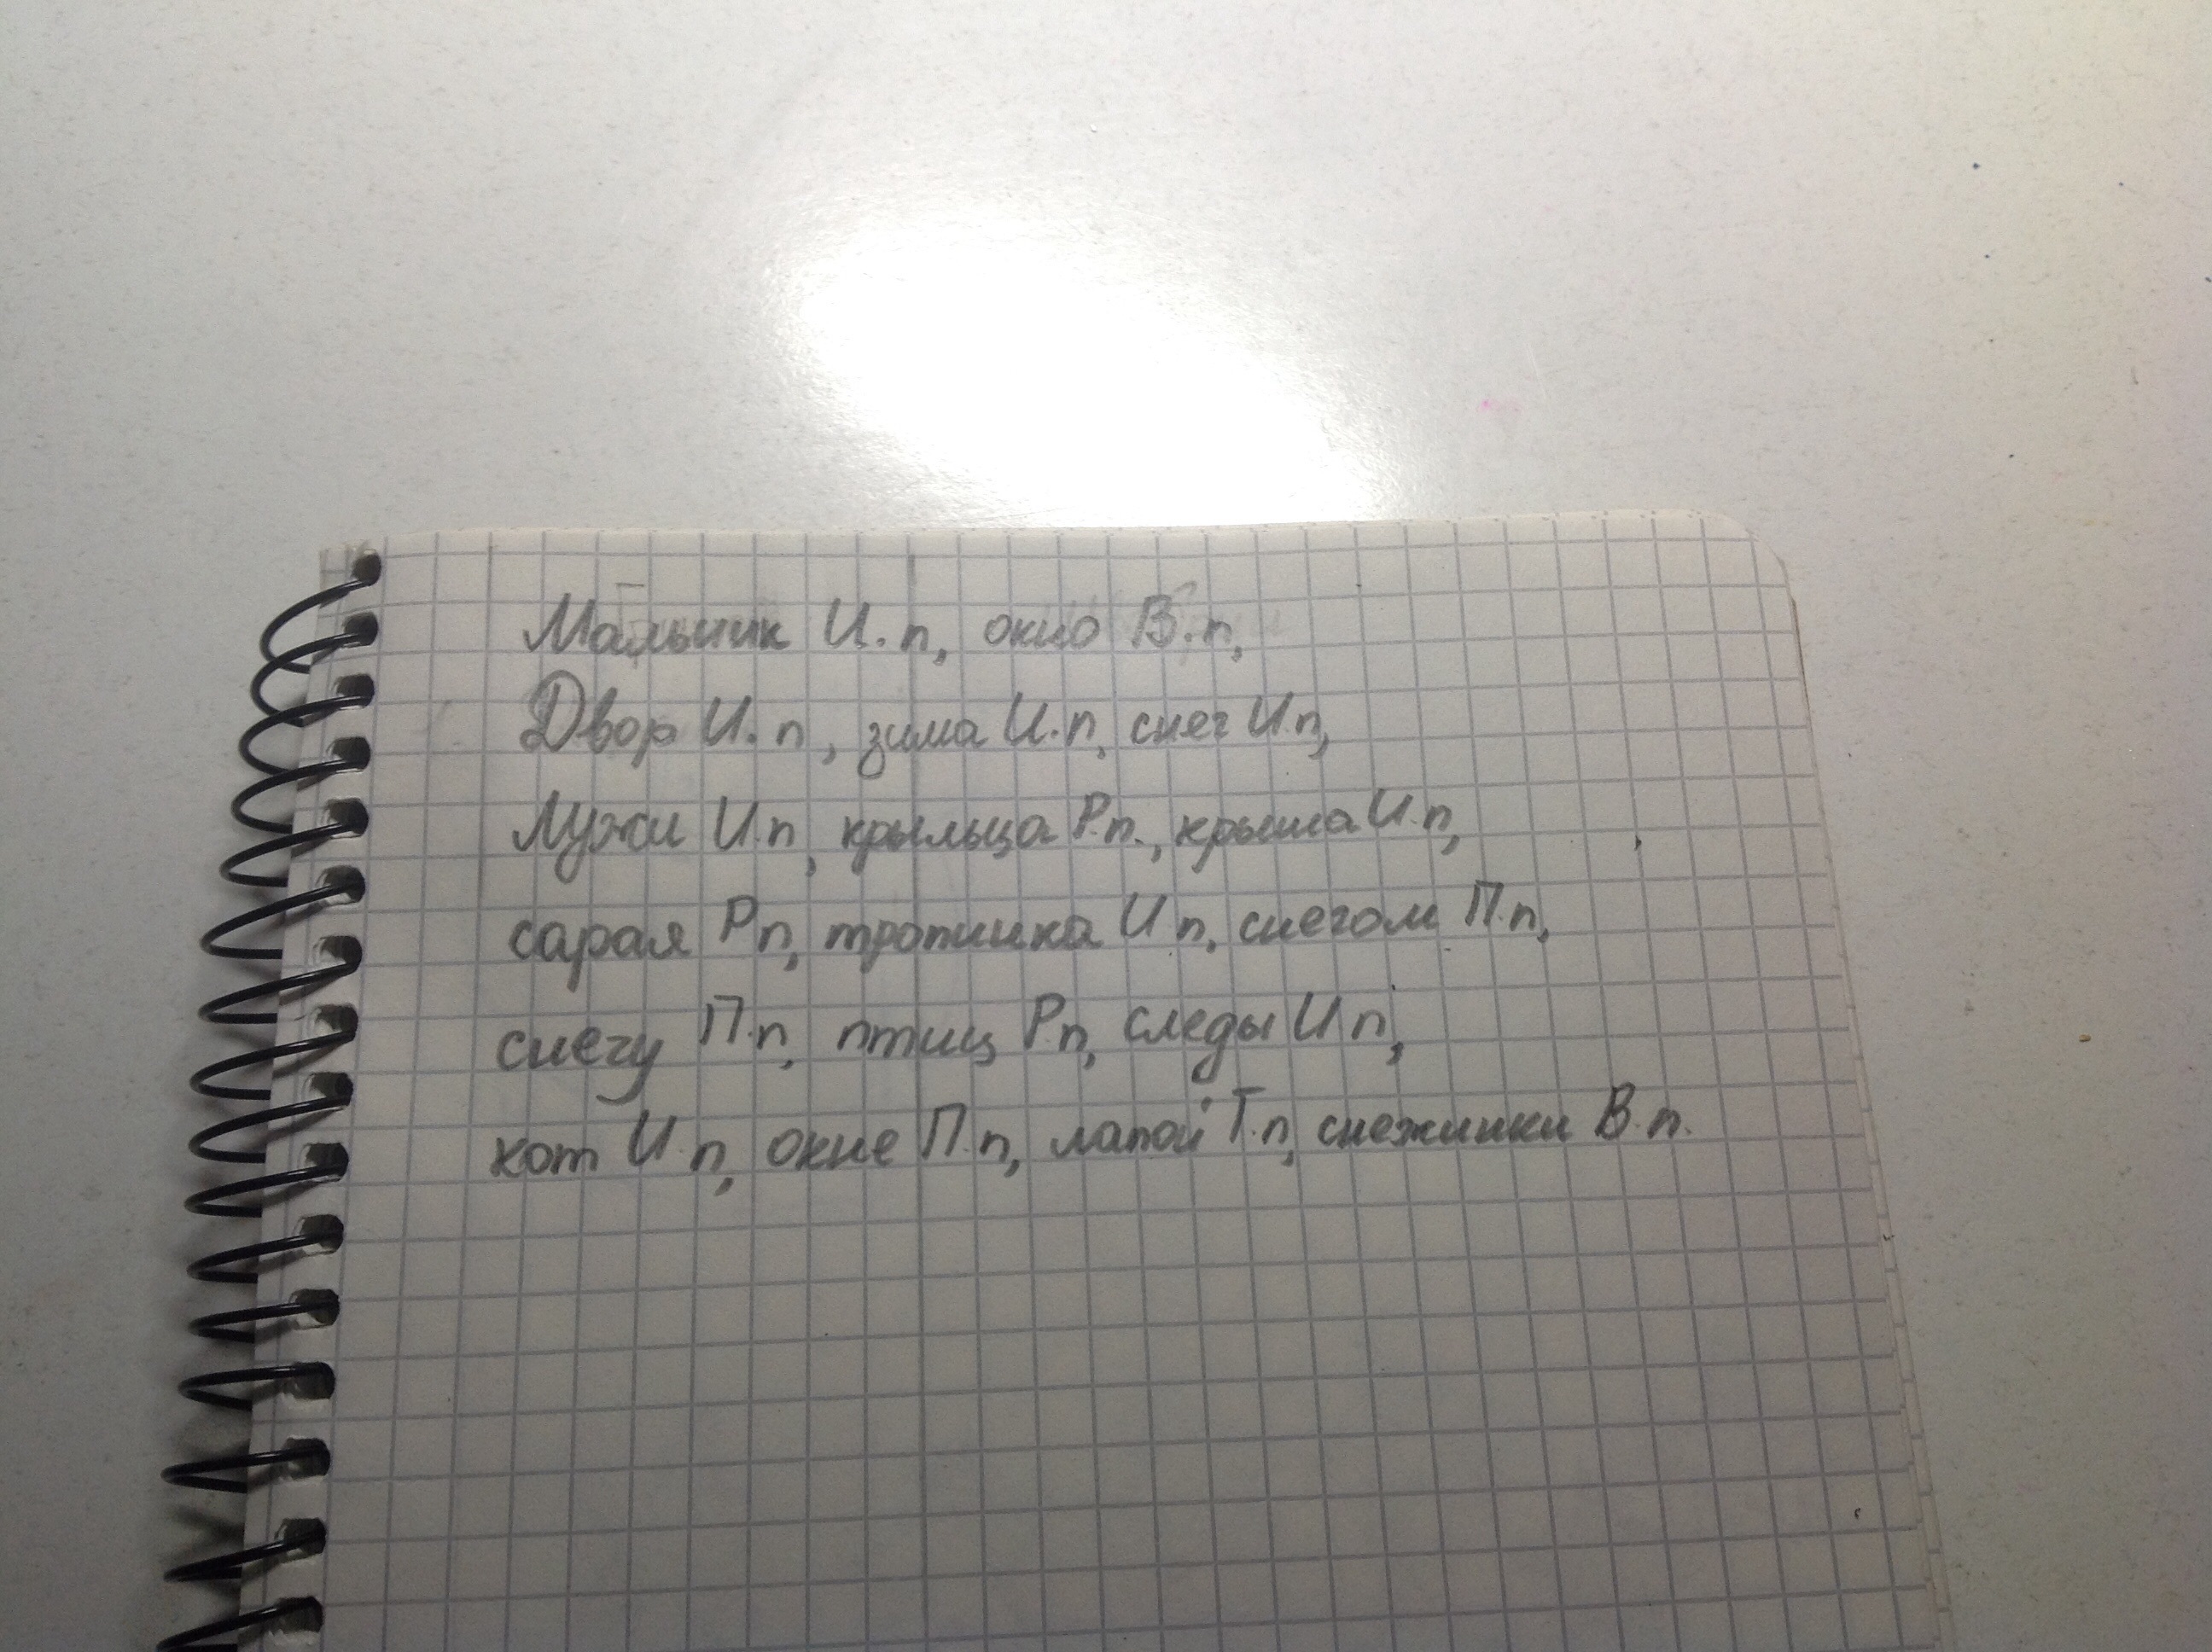 Мальчик И.п, окно В.п,
Двор И.п, зима И.п, снег И.п,
Лужи И.п, крыльца Р.п., крыша И.п,
сарая Р.п, тропинка И.п, снегом П.п,
снегу П.п, птиц Р.п, следы И.п,
кот И.п, окне П.п, лапой Т.п, снежинки В.п.